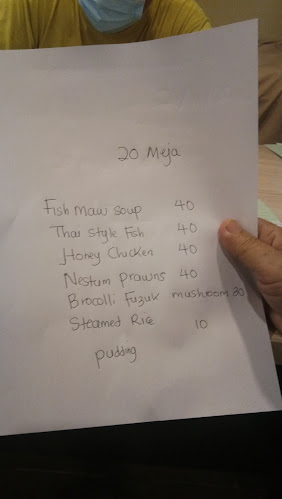 20 Meja
Fish maw soup 40
Thai style Fish 40
Honey Chicken 40
Nestum Prawns 40
Brocolli Fuzuk mushroom 30
Steamed Rice 10
pudding